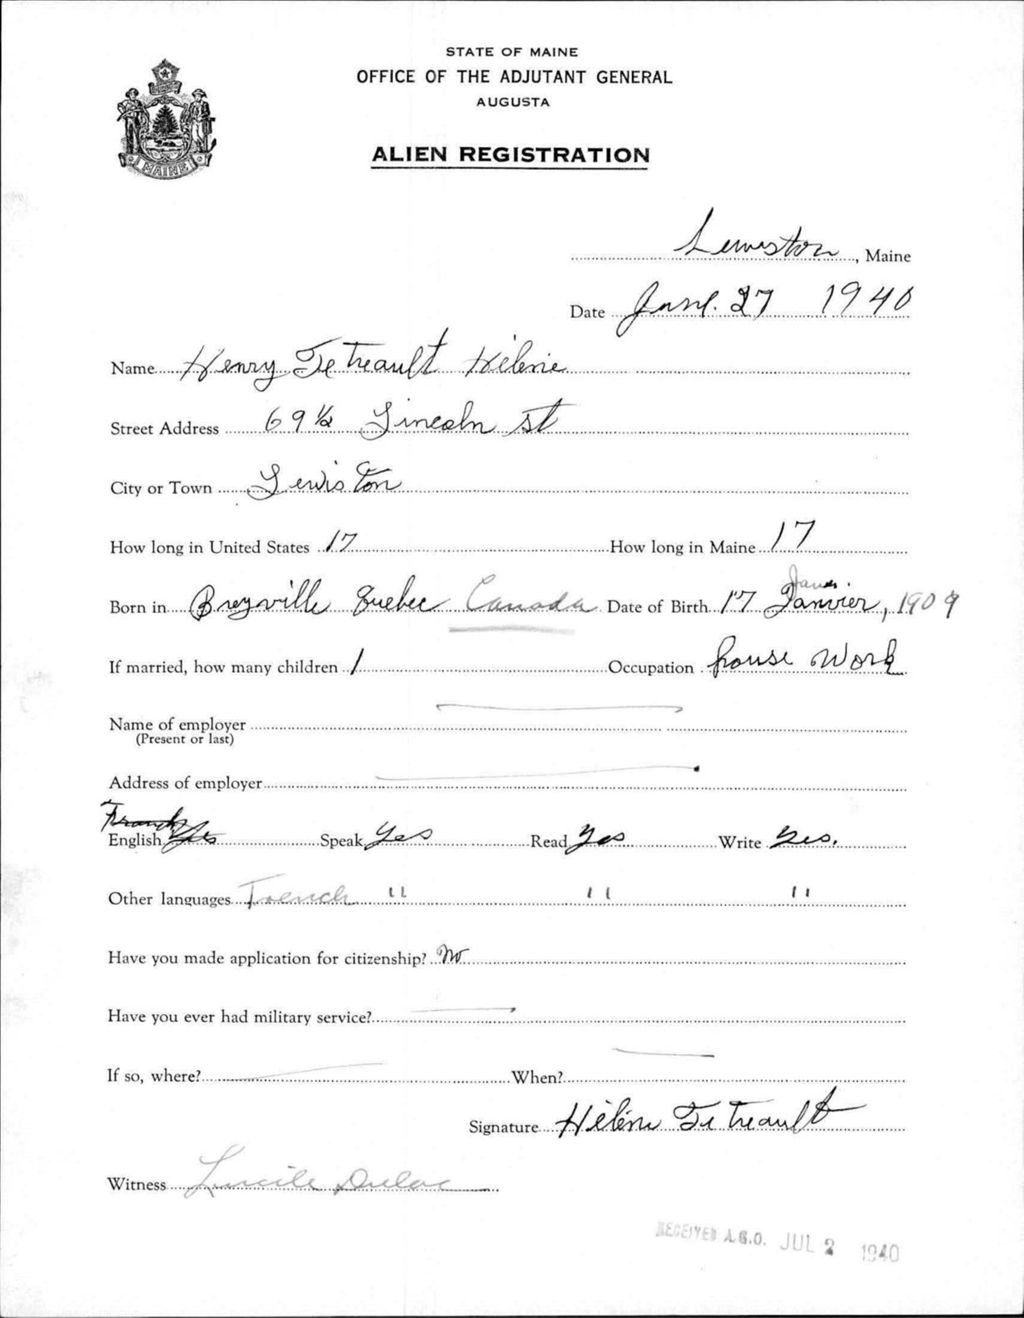 STATE OF MAINE
OFFICE OF THE ADJUTANT GENERAL
AUGUSTA
ALIEN REGISTRATION
MAINE
Lewiston, Maine
Date June. 27 1940
Name Henry Tetreault Hélène
Street Address 69 1/2 Lincoln st
City or Town Lewiston
How long in United States 17 How long in Maine 17
Born in Quebec Canada Date of Birth 17 Janvier, 1909
If married, how many children 1 Occupation house Work
Name of employer
(Present or last)
Address of employer
English Yes Speak Yes Read Yes Write Yes.
Other languages French " " "
Have you made application for citizenship? No
Have you ever had military service?
If so, where? When?
Signature Hélène Tetreault
Witness Lucile Dulac
RECEIVED A.G.O. JUL 2 1940